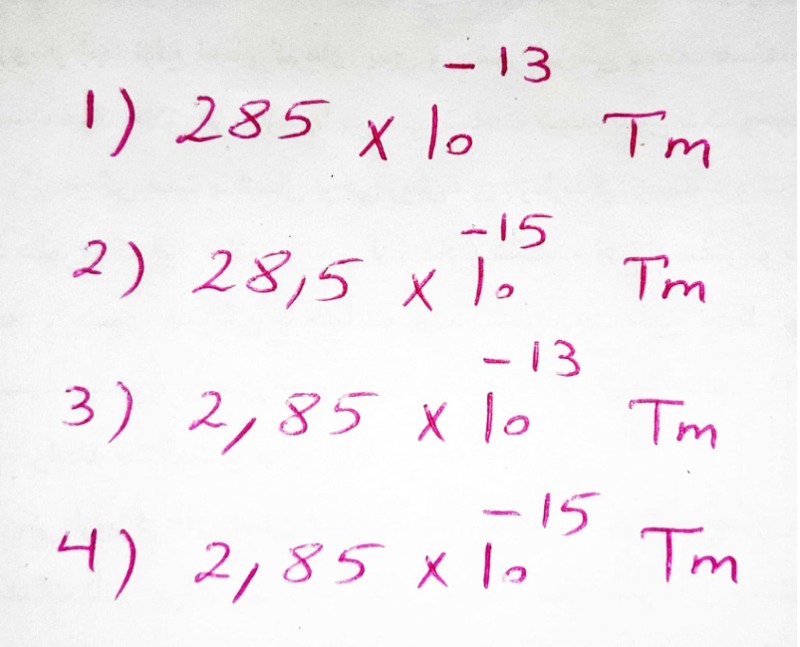 1) 285 x 10⁻¹³ Tm
2) 28,5 x 10⁻¹⁵ Tm
3) 2,85 x 10⁻¹³ Tm
4) 2,85 x 10⁻¹⁵ Tm